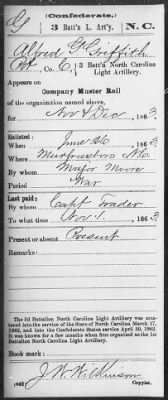 (Confederate.)
G 3 Batt'n L. Art'y. N.C.
Alfred G. Griffith
Pvt, Co. C, 3 Batt'n North Carolina
Light Artillery.
Appears on
Company Muster Roll
of the organization named above,
for Nov & Dec, 1863
Enlisted:
When June 26, 1863
Where Murfreesboro N.C.
By whom Major Moore
Period War
Last paid:
By whom Capt
To what time Nov 1, 1863
Present or absent Present
Remarks:
The 3d Battalion North Carolina Light Artillery was mus-
tered into the service of the State of North Carolina March 17,
1862, and into the Confederate States service April 30, 1862.
It was known for a few months when first organized as the
1st Battalion North Carolina Light Artillery.
Book mark:
J. W. Wilkinson
(642) Copyist.